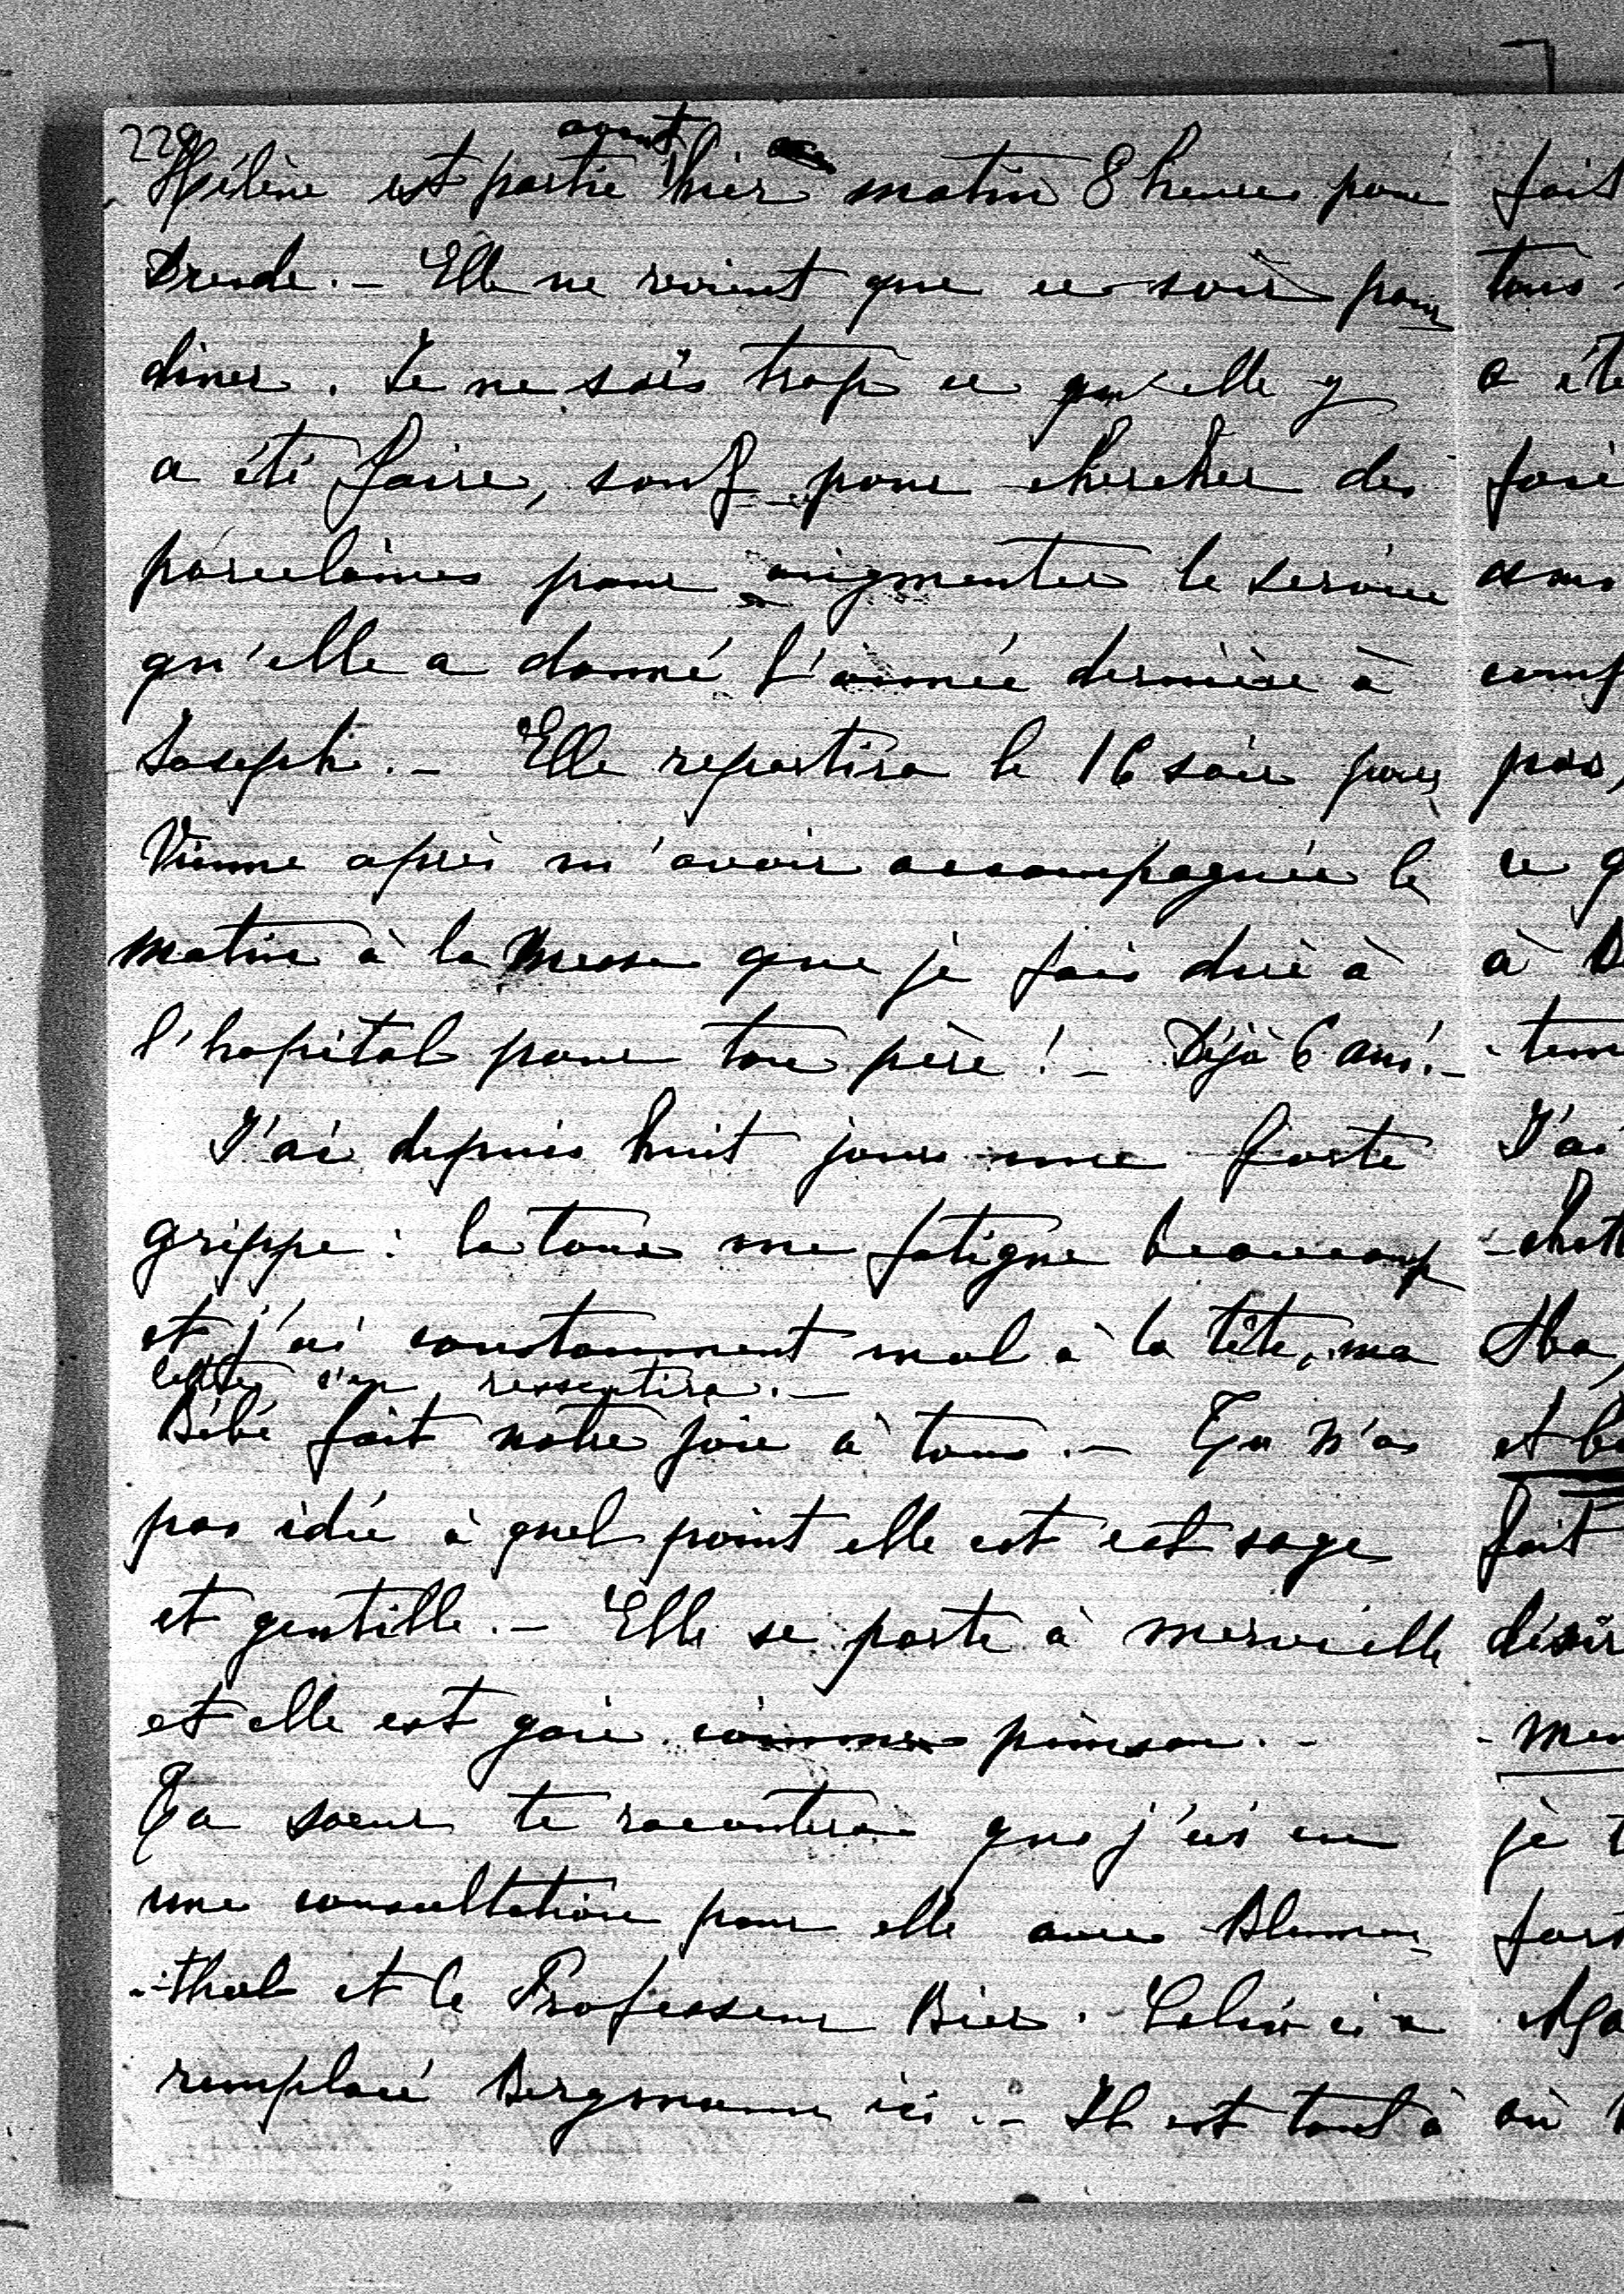 229
avant
Hélène est partie hier matin 8 heures pour
Dresde. – Elle ne revient que ce soir pour
diner. Je ne sais trop ce qu'elle y
a été faire, sauf pour chercher des
porcelaines pour augmenter le service
qu'elle a donné l'année dernière à
Joseph. – Elle repartira le 16 soir pour
Vienne après m'avoir accompagnée le
matin à la Messe que je fais dire à
l'hopital pour ton père ! – Déjà 6 ans ! –
J'ai depuis huit jours une forte
grippe : la toux me fatigue beaucoup
et j'ai constamment mal à la tête, ma
lettre s'en ressentira. –
Bébé fait notre joie à tous. – Tu n'as
pas idée à quel point elle est est sage
et gentille. – Elle se porte à merveille
et elle est gaie comme pinson. –
Ta soeur te racontera que j'ai eu
une consultation pour elle avec Blumen
-thal et le Professeur Bier. Celui ci a
remplacé Bergmann ici. – Il est tout à
fait
tous
a été
pas,
ce q
à
J'ai
et
fait
désir
je
où